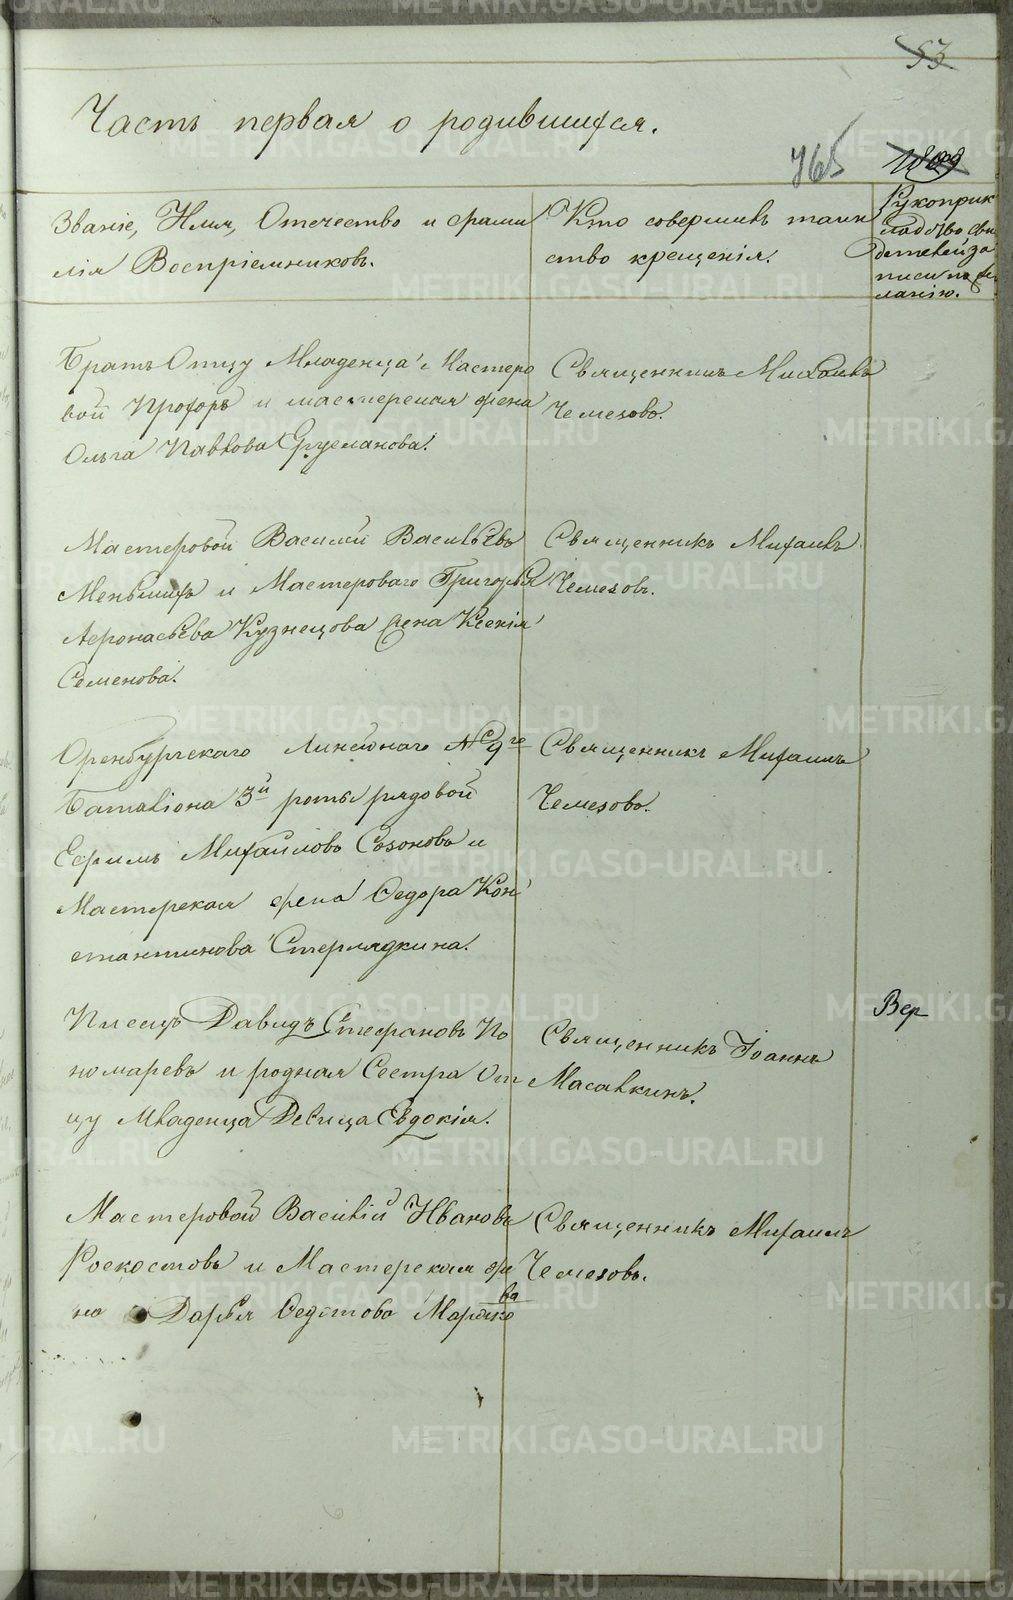 53
Часть первая о родившихся.
765
1809
Званіе, Имя, Отечество и фами
лія Воспріемниковъ.
Кто совершилъ таин
ство крещенія.
Рукоприк
ладство сви
детелей за
писи по же
ланію.
Братъ Отцу Младенца Мастеро
вой Прохоръ и мастерская жена
Ольга Павлова
Священникъ Михаилъ
Чемезовъ.
Мастеровой Василий Васильевъ
Меньшихъ и Мастероваго Григорья
Афонасьева Кузнецова жена Ксенія
Семенова.
Священникъ Михаилъ
Чемезовъ.
Оренбургскаго Линейнаго №9го
Баталіона 3й роты рядовой
Ефимъ Михайловъ Созоновъ и
Мастерская жена Федора Кон
стантинова Стерлядкина.
Священникъ Михаилъ
Чемезовъ.
Писецъ Давидъ Стефановъ По
номаревъ и родная Сестра От
цу Младенца Девица Евдокія.
Священникъ Іоаннъ
Масалкинъ.
Вер
Мастеровой Василій Ивановъ
Роскостовъ и Мастерская же
на Дарья Федотова
ва
Священникъ Михаилъ
Чемезовъ.
METRIKI.GASO-URAL.RU